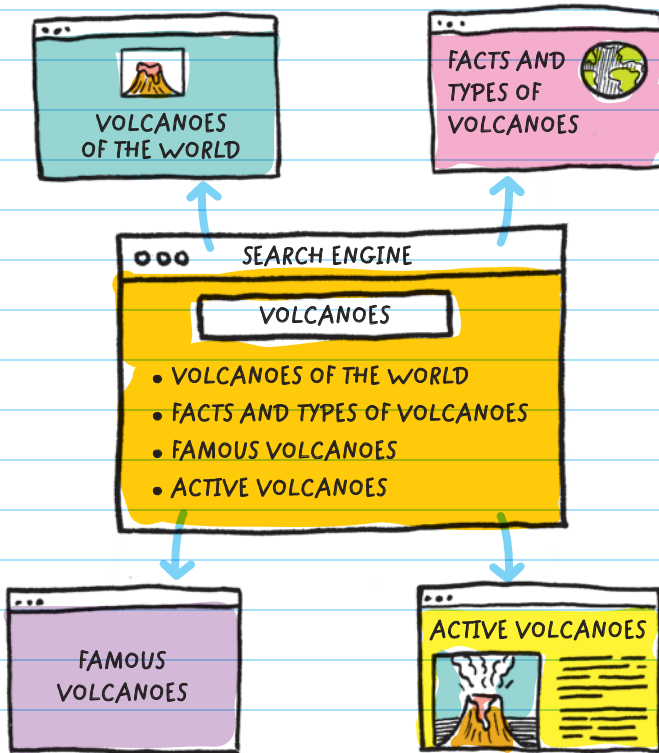 VOLCANOES
OF THE WORLD
FACTS AND
TYPES OF
VOLCANOES
SEARCH ENGINE
VOLCANOES
• VOLCANOES OF THE WORLD
• FACTS AND TYPES OF VOLCANOES
• FAMOUS VOLCANOES
• ACTIVE VOLCANOES
FAMOUS
VOLCANOES
ACTIVE VOLCANOES